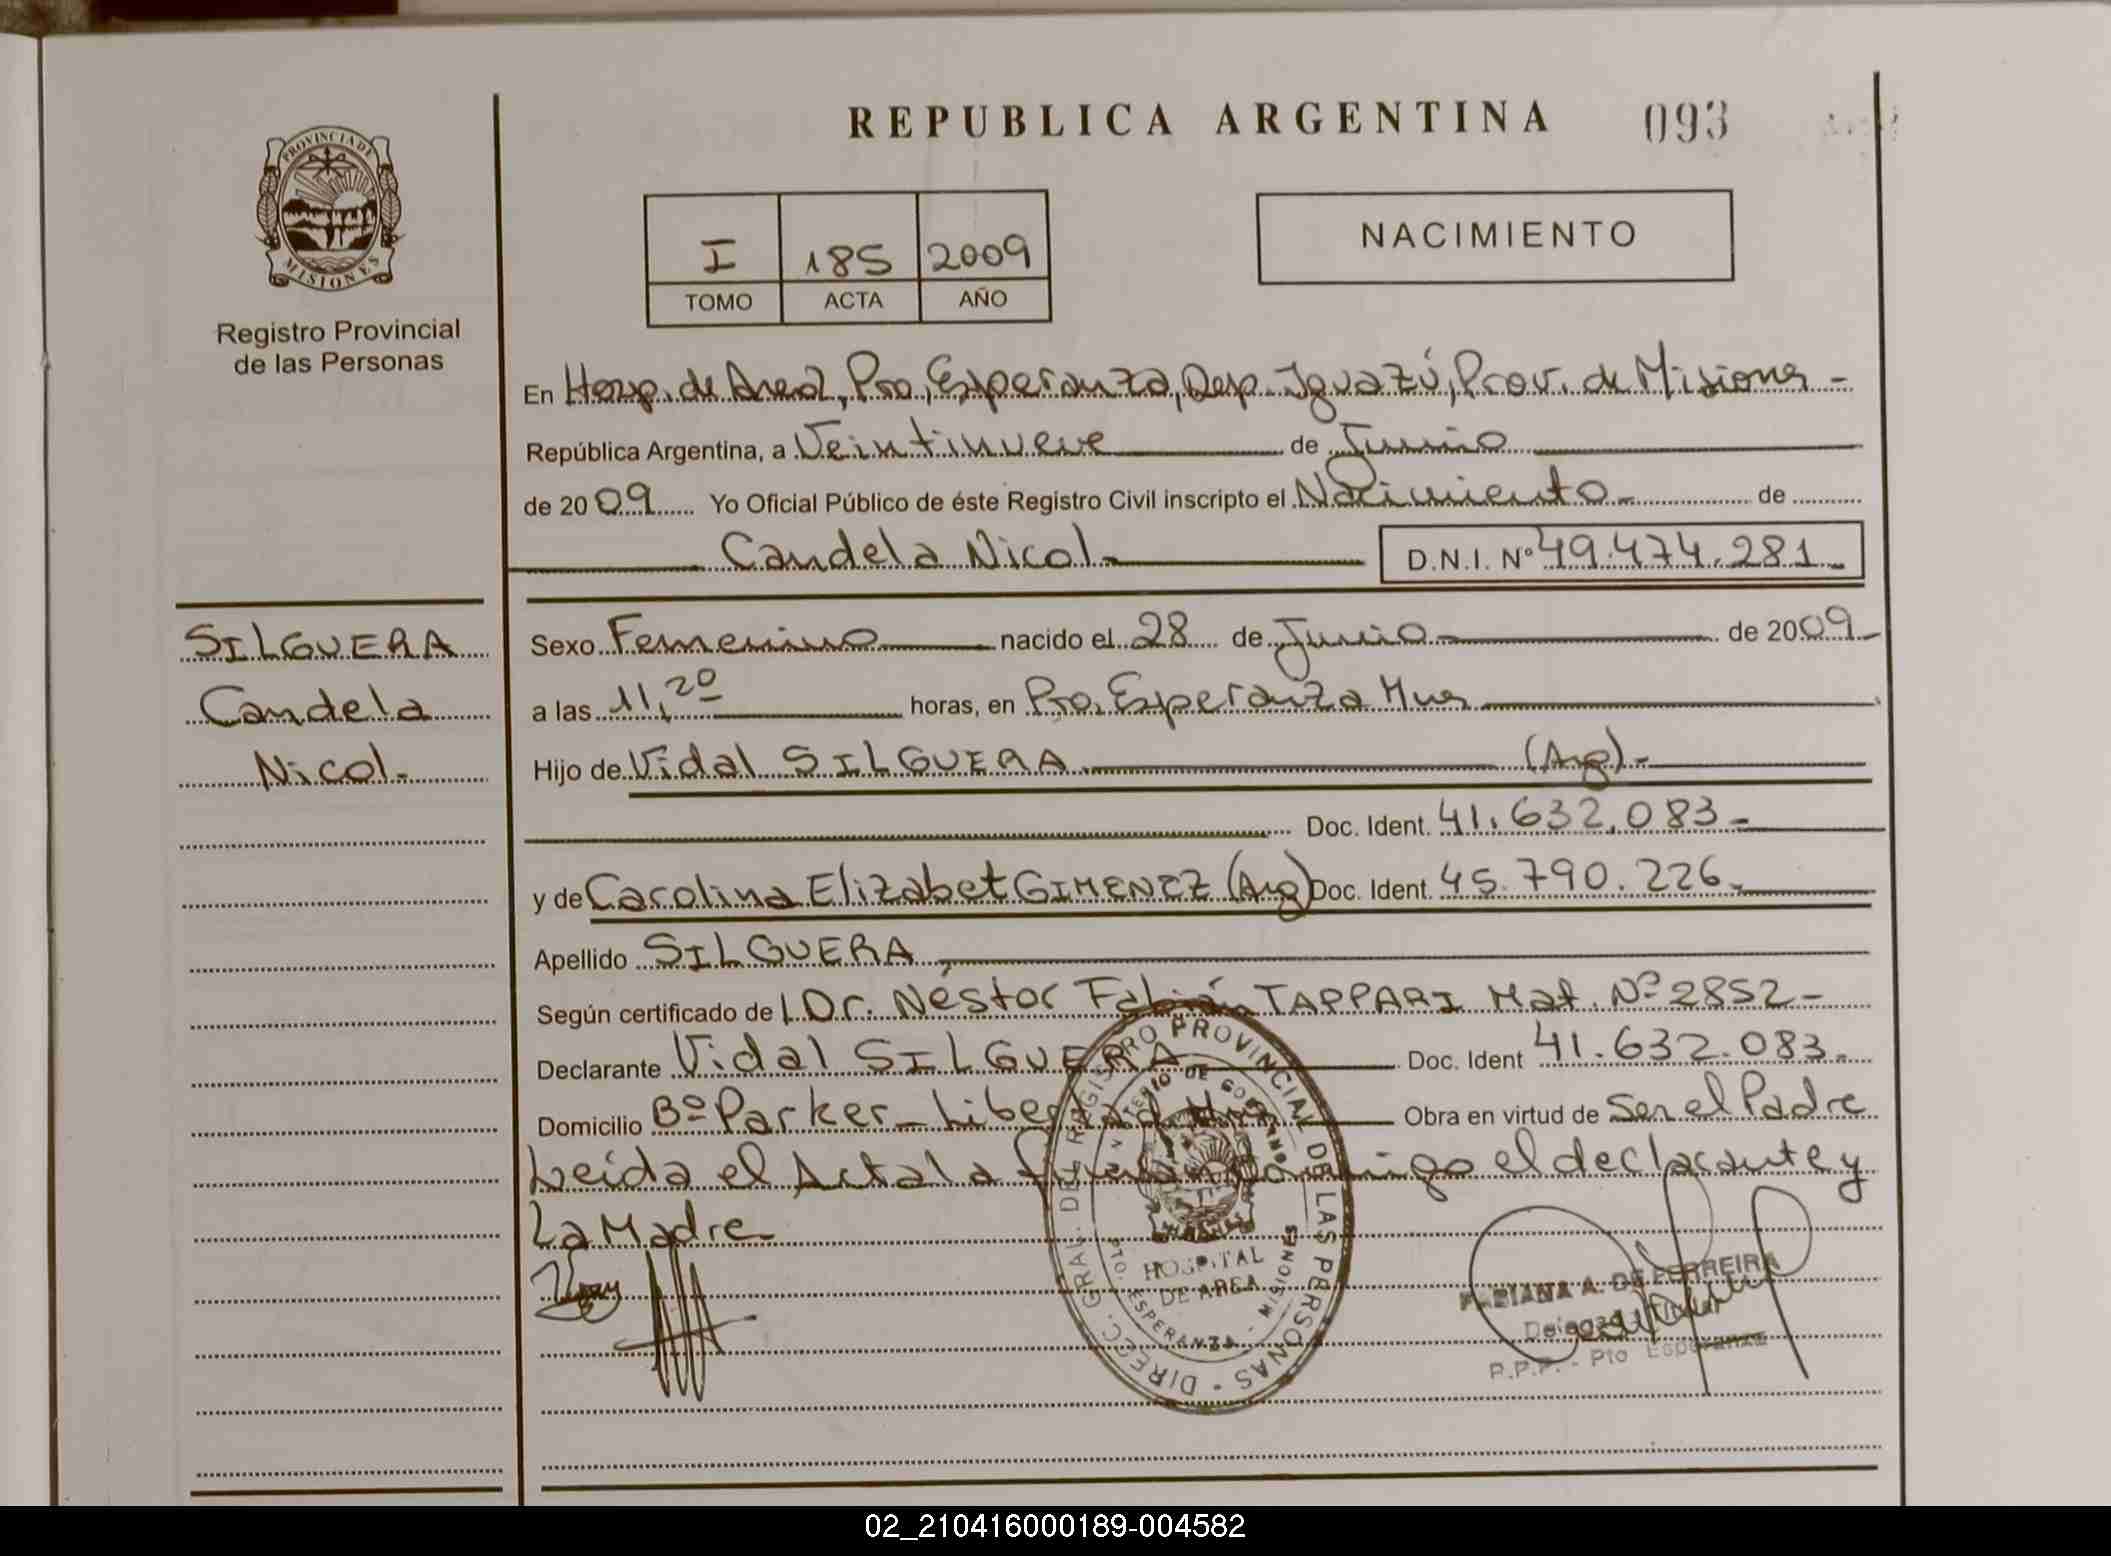 REPUBLICA ARGENTINA 093
PROVINCIA DE MISIONES
Registro Provincial
de las Personas
I 185 2009
TOMO ACTA AÑO
NACIMIENTO
En Hosp. de Area, Pto, Esperanza, Dep. Iguazú, Prov. de Misiones -
República Argentina, a Veintinueve de Junio
de 2009 Yo Oficial Público de éste Registro Civil inscripto el Nacimiento - de
Candela Nicol - D.N.I. Nº 49.474.281 -
SILGUERA
Candela
Nicol -
Sexo Femenino nacido el 28 de Junio de 2009 -
a las 11,20 horas, en Pto. Esperanza Mnes
Hijo de Vidal SILGUERA (Arg) -
Doc. Ident. 41.632.083 -
y de Carolina Elizabet GIMENEZ (Arg) Doc. Ident. 45.790.226 -
Apellido SILGUERA
Según certificado de l Dr. Néstor Fabián TAPPARI Mat. Nº 2852 -
Declarante Vidal SILGUERA Doc. Ident 41.632.083 -
Domicilio Bº Parker - Libertad Mnes Obra en virtud de Ser el Padre
Leida el Acta la firman conmigo el declarante y
La Madre
DIREC. GRAL. DEL REGISTRO PROVINCIAL DE LAS PERSONAS
MINISTERIO DE GOBIERNO
HOSPITAL
DE AREA
PTO. ESPERANZA - MISIONES
FABIANA A. DE FERREIRA
R.P.P. - Pto Esperanza
02_210416000189-004582